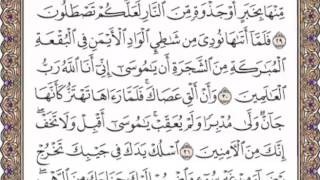 مِنْهَا بِخَبَرٍ أَوْ جَذْوَةٍ مِّنَ ٱلنَّارِ لَعَلَّكُمْ تَصْطَلُونَ
٢٩ فَلَمَّآ أَتَىٰهَا نُودِىَ مِن شَٰطِئِ ٱلْوَادِ ٱلْأَيْمَنِ فِى ٱلْبُقْعَةِ
ٱلْمُبَٰرَكَةِ مِنَ ٱلشَّجَرَةِ أَن يَٰمُوسَىٰٓ إِنِّىٓ أَنَا ٱللَّهُ رَبُّ
ٱلْعَٰلَمِينَ ٣٠ وَأَنْ أَلْقِ عَصَاكَ فَلَمَّا رَءَاهَا تَهْتَزُّ كَأَنَّهَا
جَآنٌّ وَلَّىٰ مُدْبِرًا وَلَمْ يُعَقِّبْ يَٰمُوسَىٰٓ أَقْبِلْ وَلَا تَخَفْ
إِنَّكَ مِنَ ٱلْءَامِنِينَ ٣١ ٱسْلُكْ يَدَكَ فِى جَيْبِكَ تَخْرُجْ